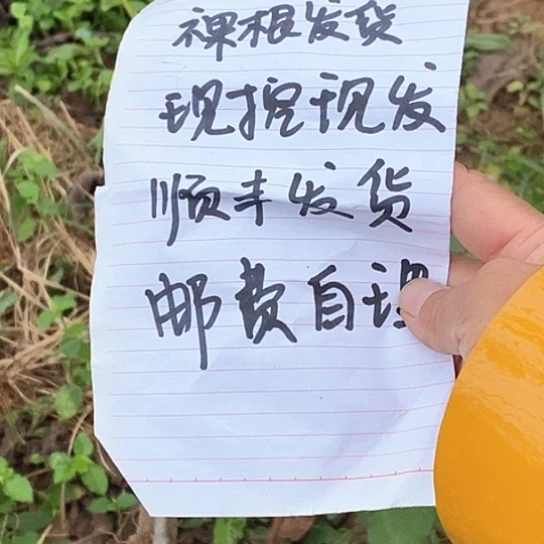 裸根发货
现挖现发
顺丰发货
邮费自理